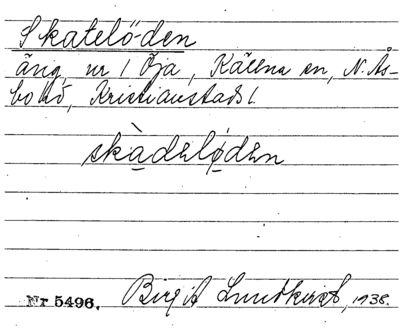 Skatelö-den
äng, nr 1 Öja, Källna sn, N. Ås-
bo hd, Kristianstads l.
skàdəlødən
Nr 5496. Birgit Lundkvist, 1938.